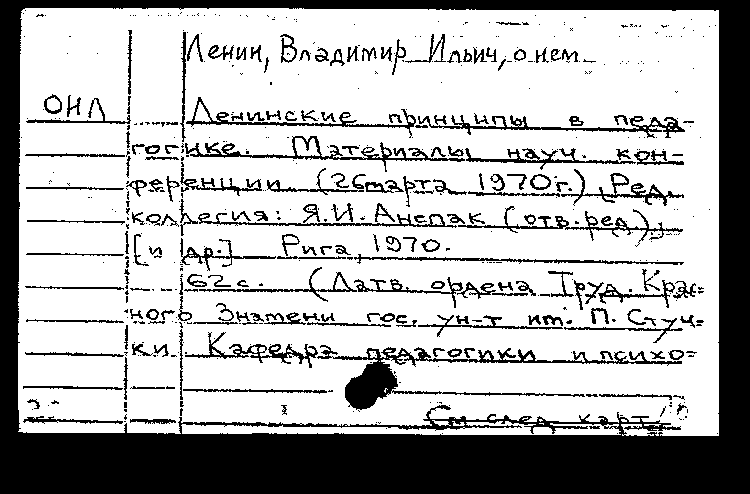 Ленин, Владимир Ильич, о нем
ОНЛ Ленинские принципы в педа-
гогике. Материалы науч. кон-
ференции (26 марта 1970г.) [Ред.
коллегия: Я.И. Анспак (отв. ред),
[и др.] Рига, 1970.
62 с. (Латв. ордена Труд. Крас-
ного Знамени гос. ун-т им. П. Стуч-
ки Кафедра педагогики и психо-
См след карт.